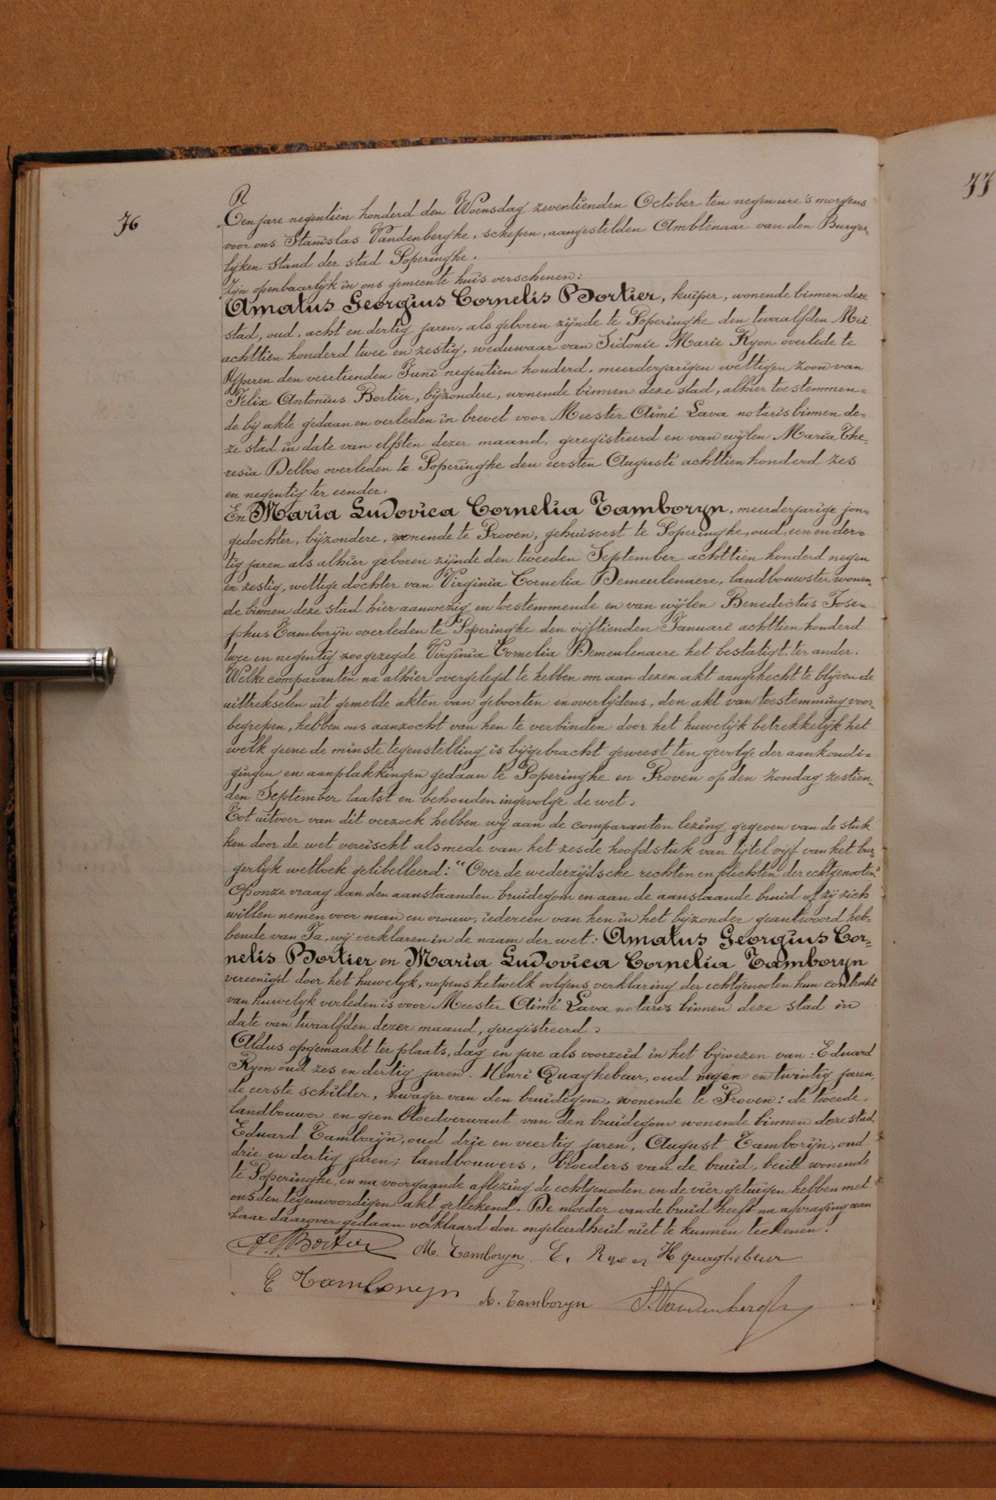 76
77
R
Een jare negentien honderd den Woensdag zeventienden October ten negen ure 's morgens
voor ons Stanislas Vandenberghe, schepen, aangestelden Ambtenaar van den Burger-
lijken stand der stad Poperinghe.
Zijn openbaarlijk in ons gemeente huis verschenen:
Amatus Georgius Cornelis Bortier, kuiper, wonende binnen deze
stad, oud, acht en dertig jaren, als geboren zijnde te Poperinghe den twaalfden Mei
achttien honderd twee en zestig, weduwaar van Sidonie Marie Ryon overlede te
Yperen den veertienden Juni negentien honderd, meerderjarigen wettigen zoon van
Felix Antonius Bortier, bijzondere, wonende binnen deze stad, alhier toestemmen-
de bij akte gedaan en verleden in brevet voor Meester Aimé Lava notaris binnen de-
ze stad in date van elfsten dezer maand, geregistreerd en van wijlen Maria The-
resia Delboo overleden te Poperinghe den eersten Augusti achttien honderd zes
en negentig ter eender.
En Maria Ludovica Cornelia Tamboryn, meerderjarige jon-
gedochter, bijzondere, wonende te Proven, gehuisvest te Poperinghe, oud, een en der-
tig jaren als alhier geboren zijnde den tweeden September achttien honderd negen
en zestig, wettige dochter van Virginia Cornelia Demeulenaere, landbouwster wonen-
de binnen deze stad hier aanwezig en toestemmende en van wijlen Benedictus Jose-
phus Tamborijn overleden te Poperinghe den vijftienden Januari achttien honderd
twee en negentig zoo gezegde Virginia Cornelia Demeulenaere het bestatigt. ter ander.
Welke comparanten na alhier overgelegd te hebben om aan dezen akt aangehecht te blijven de
uittrekselen uit gemelde akten van geboorten en overlijdens, den akt van toestemming voor
begrepen, hebben ons aanzocht van hen te verbinden door het huwelijk betrekkelijk het
welk geene de minste tegenstelling is bijgebracht geweest ten gevolge der aankondi-
gingen en aanplakkingen gedaan te Poperinghe en Proven op den Zondag zestien-
den September laatst en behouden ingevolge de wet.
Tot uitvoer van dit verzoek hebben wij aan de comparanten lezing gegeven van de stuk
ken door de wet vereischt alsmede van het zesde hoofdstuk van tijtel vijf van het bur-
gerlijk wetboek getibelleerd: "Over de wederzijdsche rechten en plichten der echtgenooten"
Op onze vraag aan den aanstaanden bruidegom en aan de aanstaande bruid of zij zich
willen nemen voor man en vrouw, iedereen van hen in het bijzonder geantwoord heb-
bende van Ja, wij verklaren in de naam der wet: Amatus Georgius Cor-
nelis Bortier en Maria Ludovica Cornelia Tamboryn
vereenigd door het huwelijk, nopens hetwelk volgens verklaring der echtgenooten hun contrakt
van huwelijk verleden is voor Meester Aimé Lava notaris binnen deze stad in
date van twaalfden dezer maand, geregistreerd.
Aldus opgemaakt ter plaats, dag en jare als voorzeid in het bijwezen van: Eduard
Ryon oud zes en dertig jaren. Henri Quaghebeur, oud negen en twintig jaren,
de eerste schilder, zwager van den bruidegom, wonende te Proven: de tweede,
landbouwer en geen bloedverwant van den bruidegom wonende binnen deze stad,
Eduard Tamborijn, oud drie en veertig jaren, August Tamborijn, oud
drie en dertig jaren; landbouwers, broeders van de bruid, beide wonende
te Poperinghe, en na voorgaande aflezing de echtgenooten en de vier getuigen hebben met
ons den tegenwoordigen akt geteekend. De moeder van de bruid heeft na afvraging aan
haar daarover gedaan verklaard door ongeleerdheid niet te kunnen teekenen.
Bortier M. Tamboryn E. Ryon H Quaghebeur
E Tamboryn A. Tamboryn S. Vandenberghe